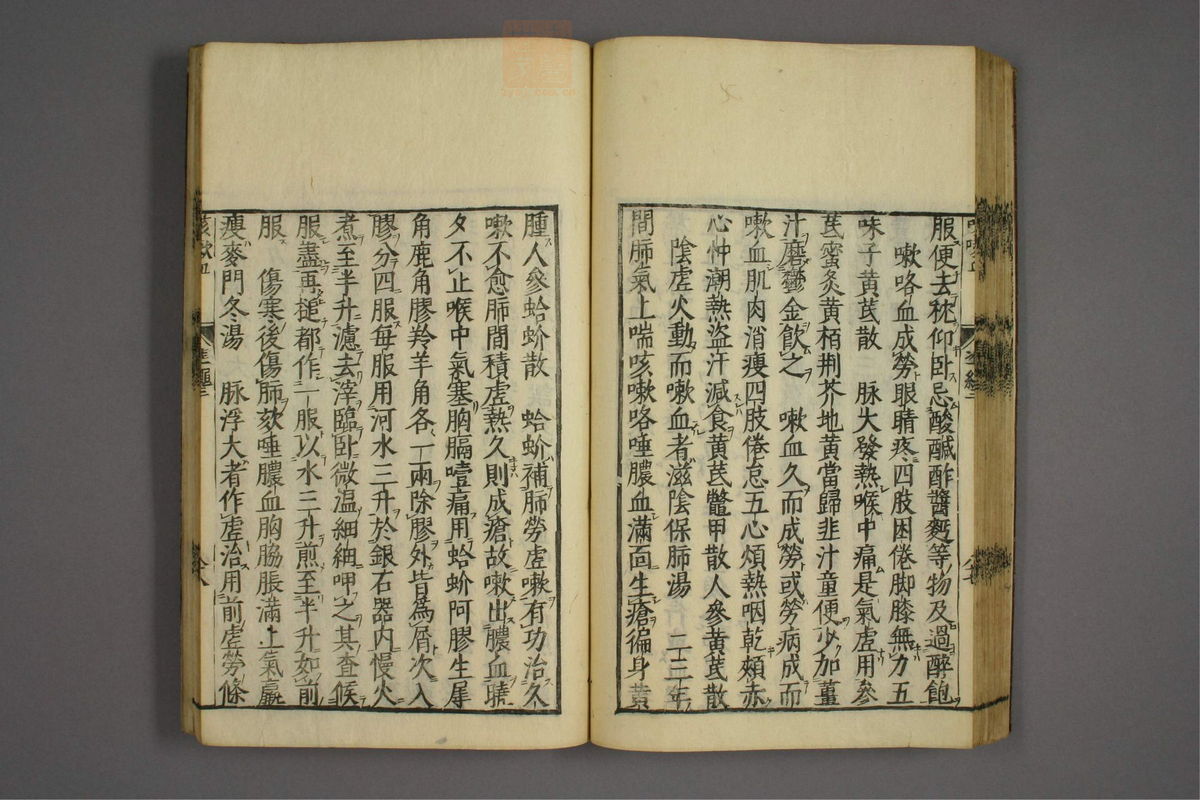 服便去枕仰卧忌酸醎酢醬麪等物及過醉飽
嗽咯血成勞眼睛疼四肢困倦脚膝無力五
味子黃芪散 脉大發熱喉中痛是氣虛用參
芪蜜炙黃栢荆芥地黃當歸韭汁童便少加薑
汁磨鬱金飲之 嗽血久而成勞或勞病成而
嗽血肌肉消瘦四肢倦怠五心煩熱咽乾頰赤
心忡潮熱盜汗減食黃芪鼈甲散人參黃芪散
陰虛火動而嗽血者滋陰保肺湯 二三年
間肺氣上喘咳嗽咯唾膿血滿面生瘡徧身黃
腫人參蛤蚧散 蛤蚧補肺勞虛嗽有功治久
嗽不愈肺間積虛熱久則成瘡故嗽出膿血曉
夕不止喉中氣塞胸膈噎痛用蛤蚧阿膠生犀
角鹿角膠羚羊角各一兩除膠外皆爲屑次入
膠分四服每服用河水三升於銀石器內慢火
煮至半升濾去滓臨卧微溫細細呷之其查候
服盡再搥都作一服以水三升煎至半升如前
服 傷寒後傷肺欬唾膿血胸脇脹滿上氣羸
瘦麥門冬湯 脉浮大者作虛治用前虛勞條